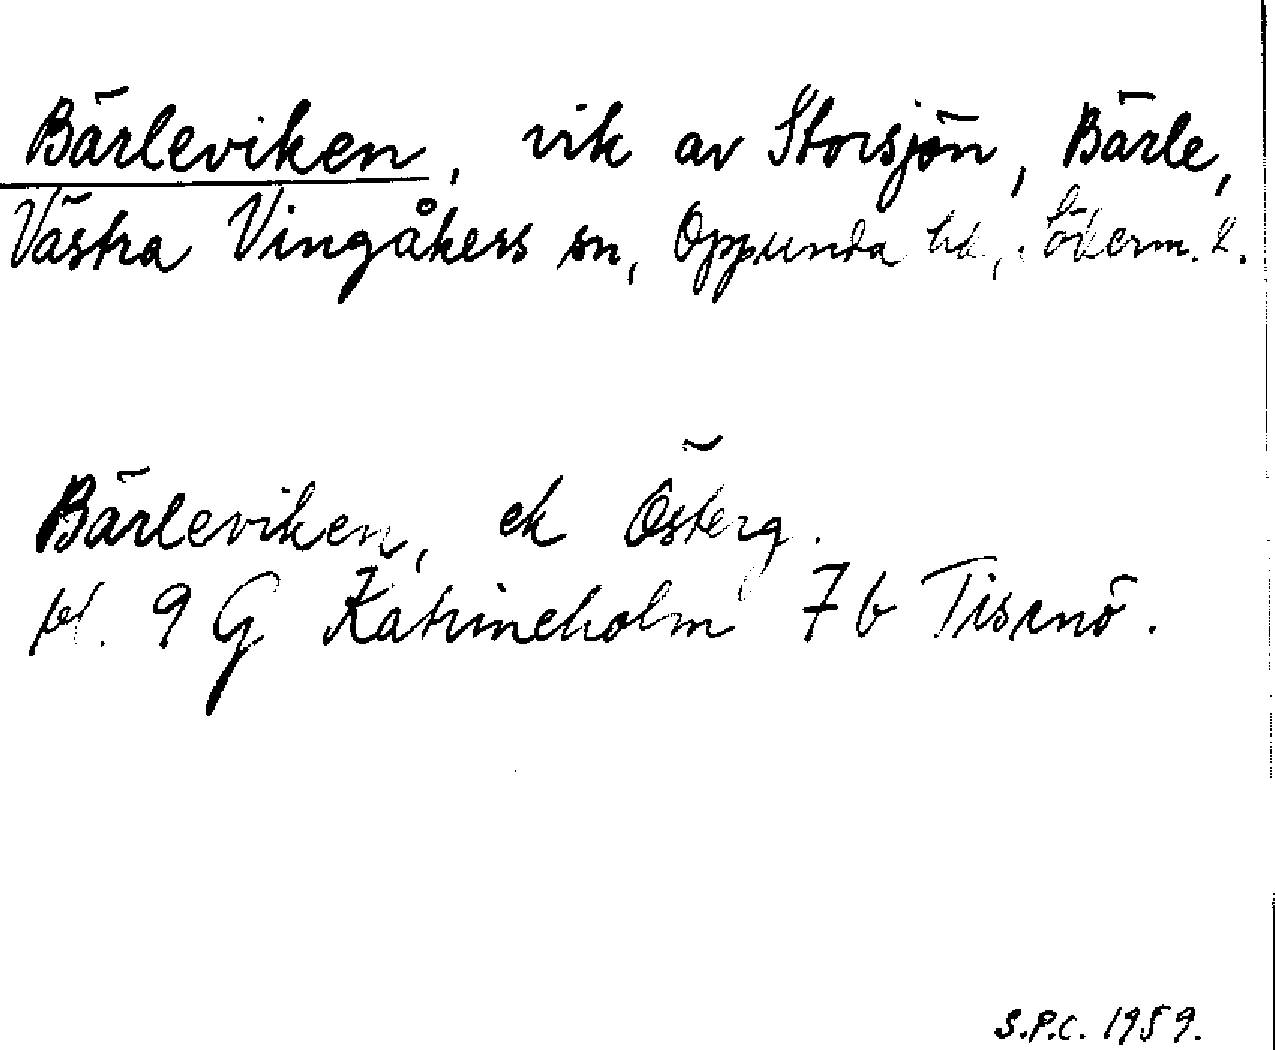 Bärleviken, vik av Storsjön, Bärle,
Västra Vingåkers sn, Oppunda hd, Söderm. l.
Bärleviken, ek Österg.
bl. 9 G Katrineholm 7 b Tisenö.
S.P.C. 1959.